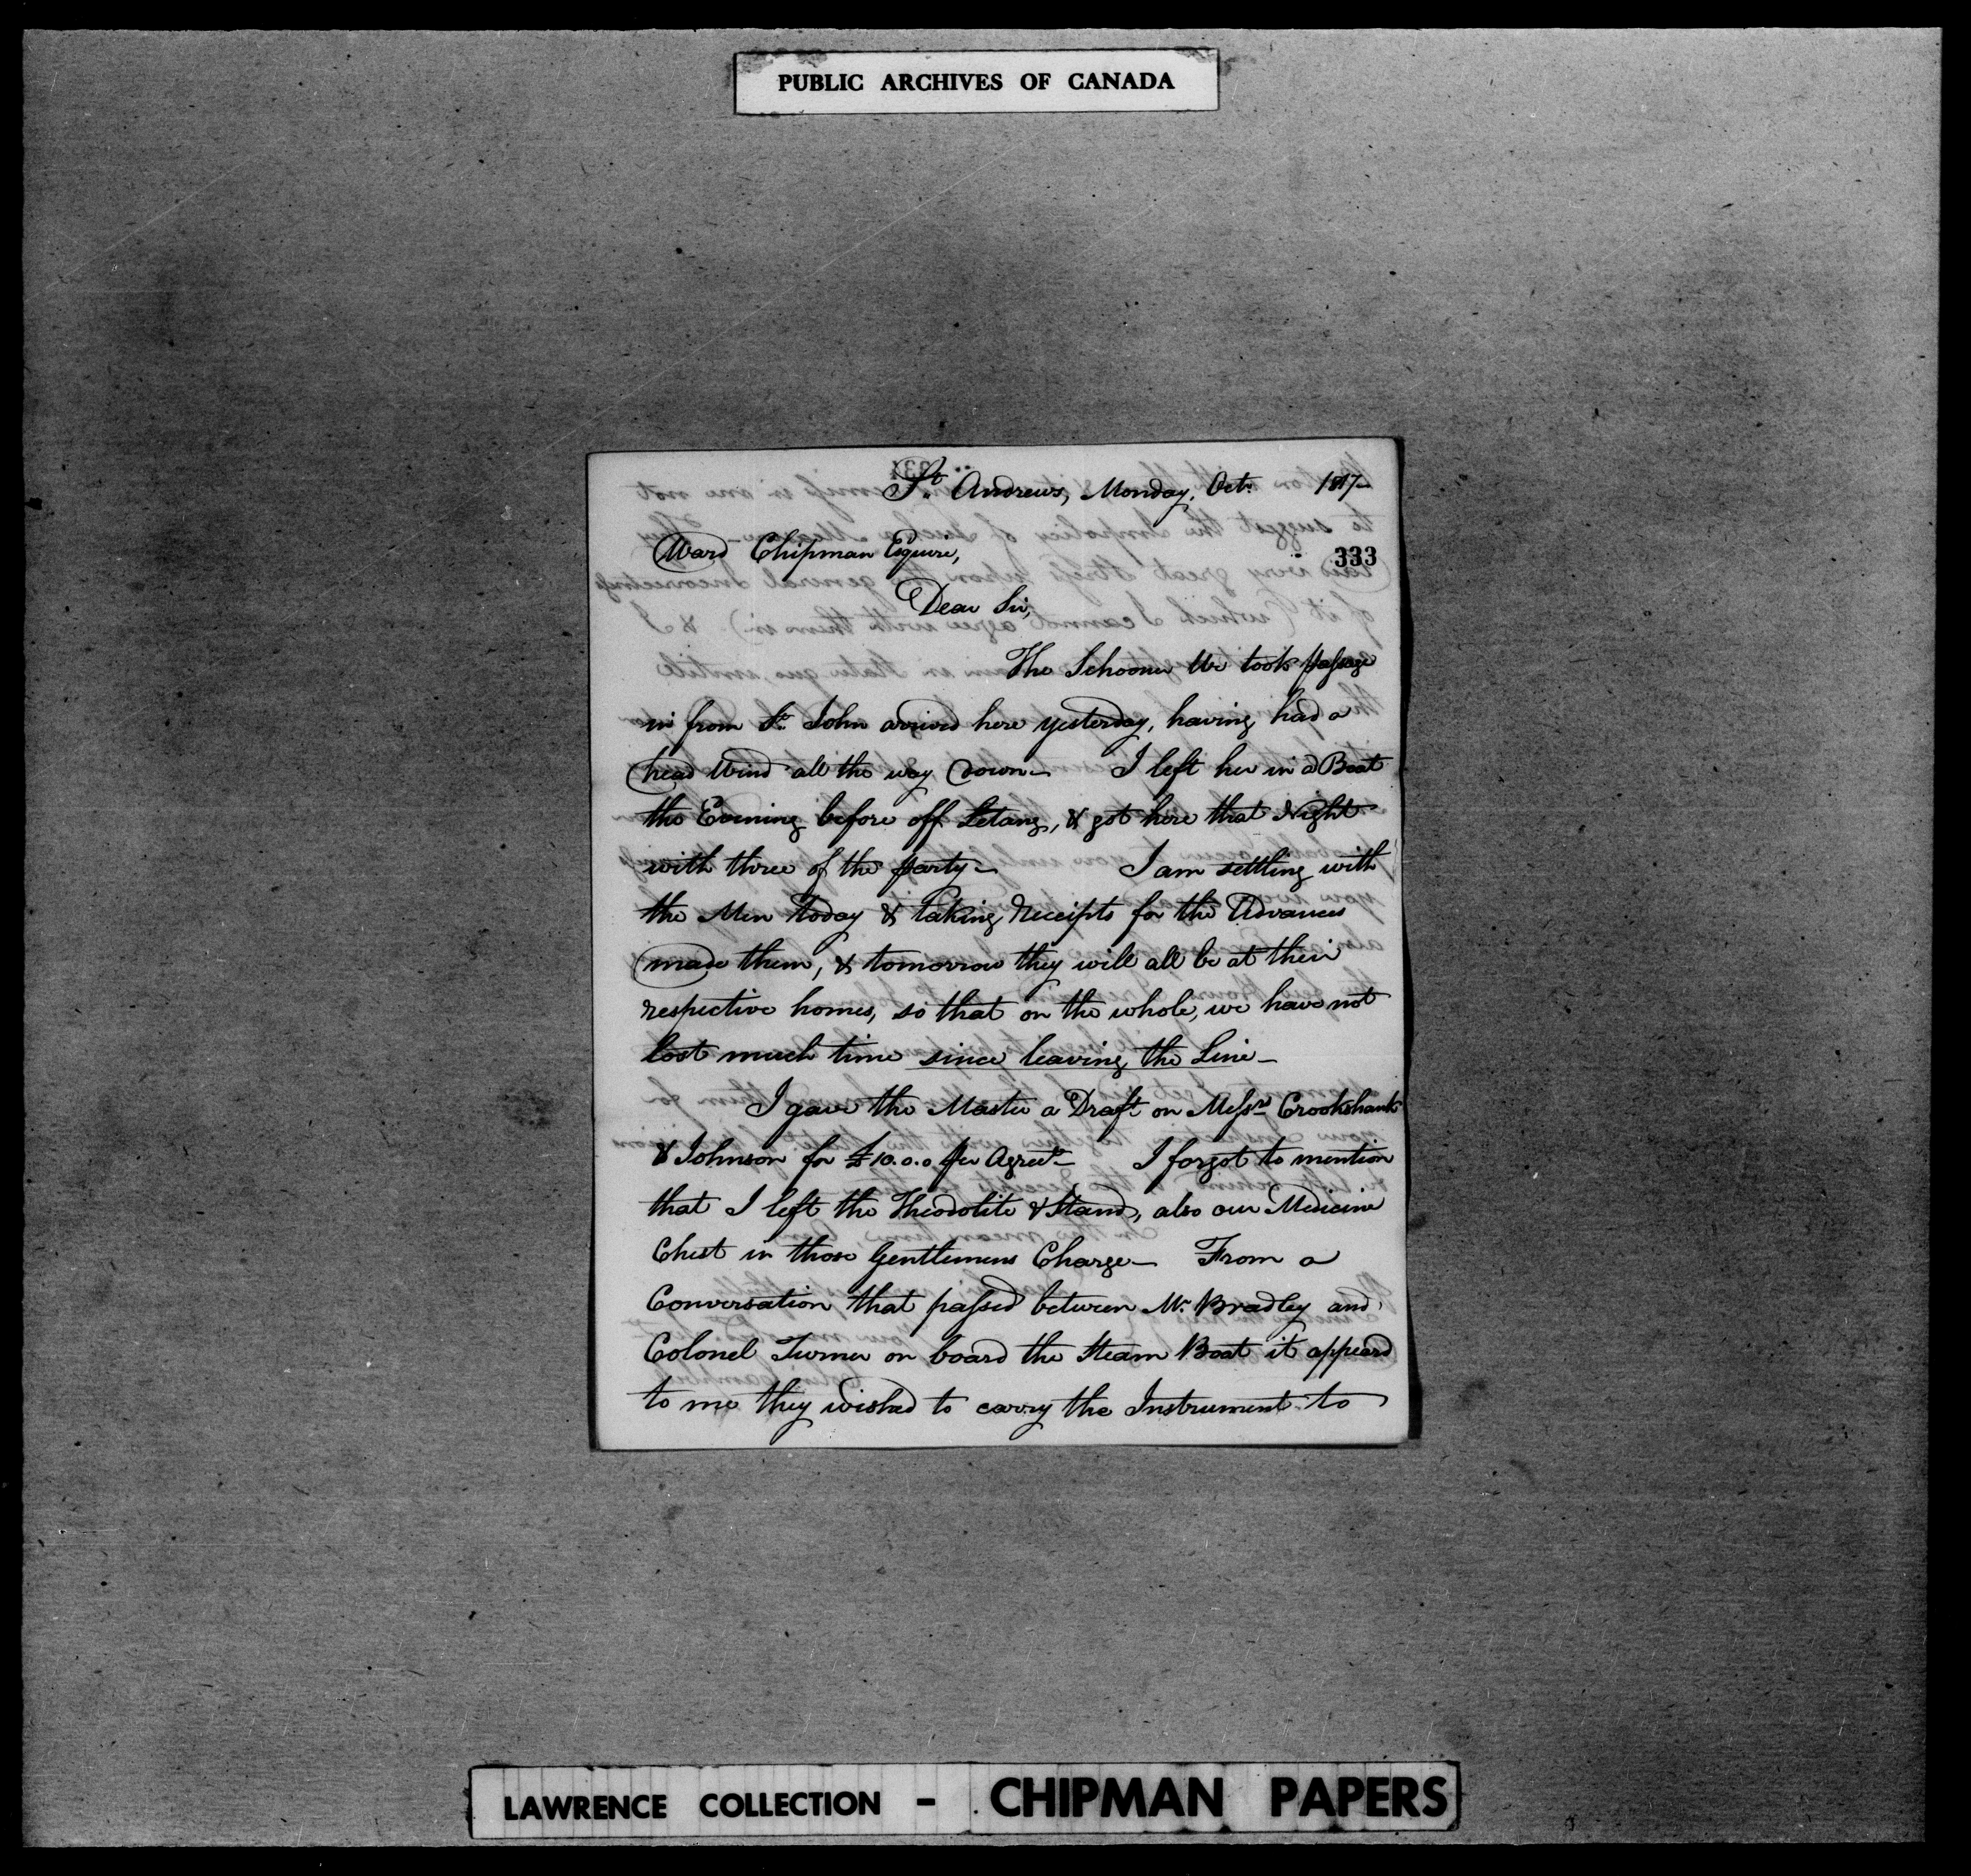 PUBLIC ARCHIVES OF CANADA
St. Andrews, Monday, Octr. 1817—
Ward Chipman Esquire,
333
Dear Sir,
The Schooner We took passage
in from St. John arrived here yesterday, having had a
head Wind all the way down— I left her in a Boat
the Evening before off Letang, & got here that Night
with three of the party— I am settling with
the Men today & taking Receipts for the Advances
made them, & tomorrow they will all be at their
respective homes, so that on the whole, we have not
lost much time since leaving the Line—
I gave the Master a Draft on Messrs Crookshank
& Johnson for £10.0.0 per Agreet— I forgot to mention
that I left the Theodolite & Stand, also our Medicine
Chest in those Gentlemens Charge— From a
Conversation that passed between Mr. Bradley and
Colonel Turner on board the Steam Boat it appeard
to me they wished to carry the Instrument to
LAWRENCE COLLECTION - CHIPMAN PAPERS